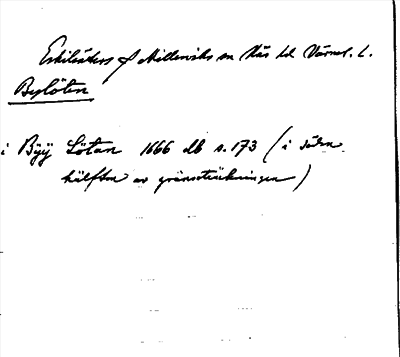 Eskilsäters o Millesviks sn Näs hd Värml. L.
Bylötan
i Byÿ Lötan 1666 db s. 173 (i södra
hälften av gränssträckningen)